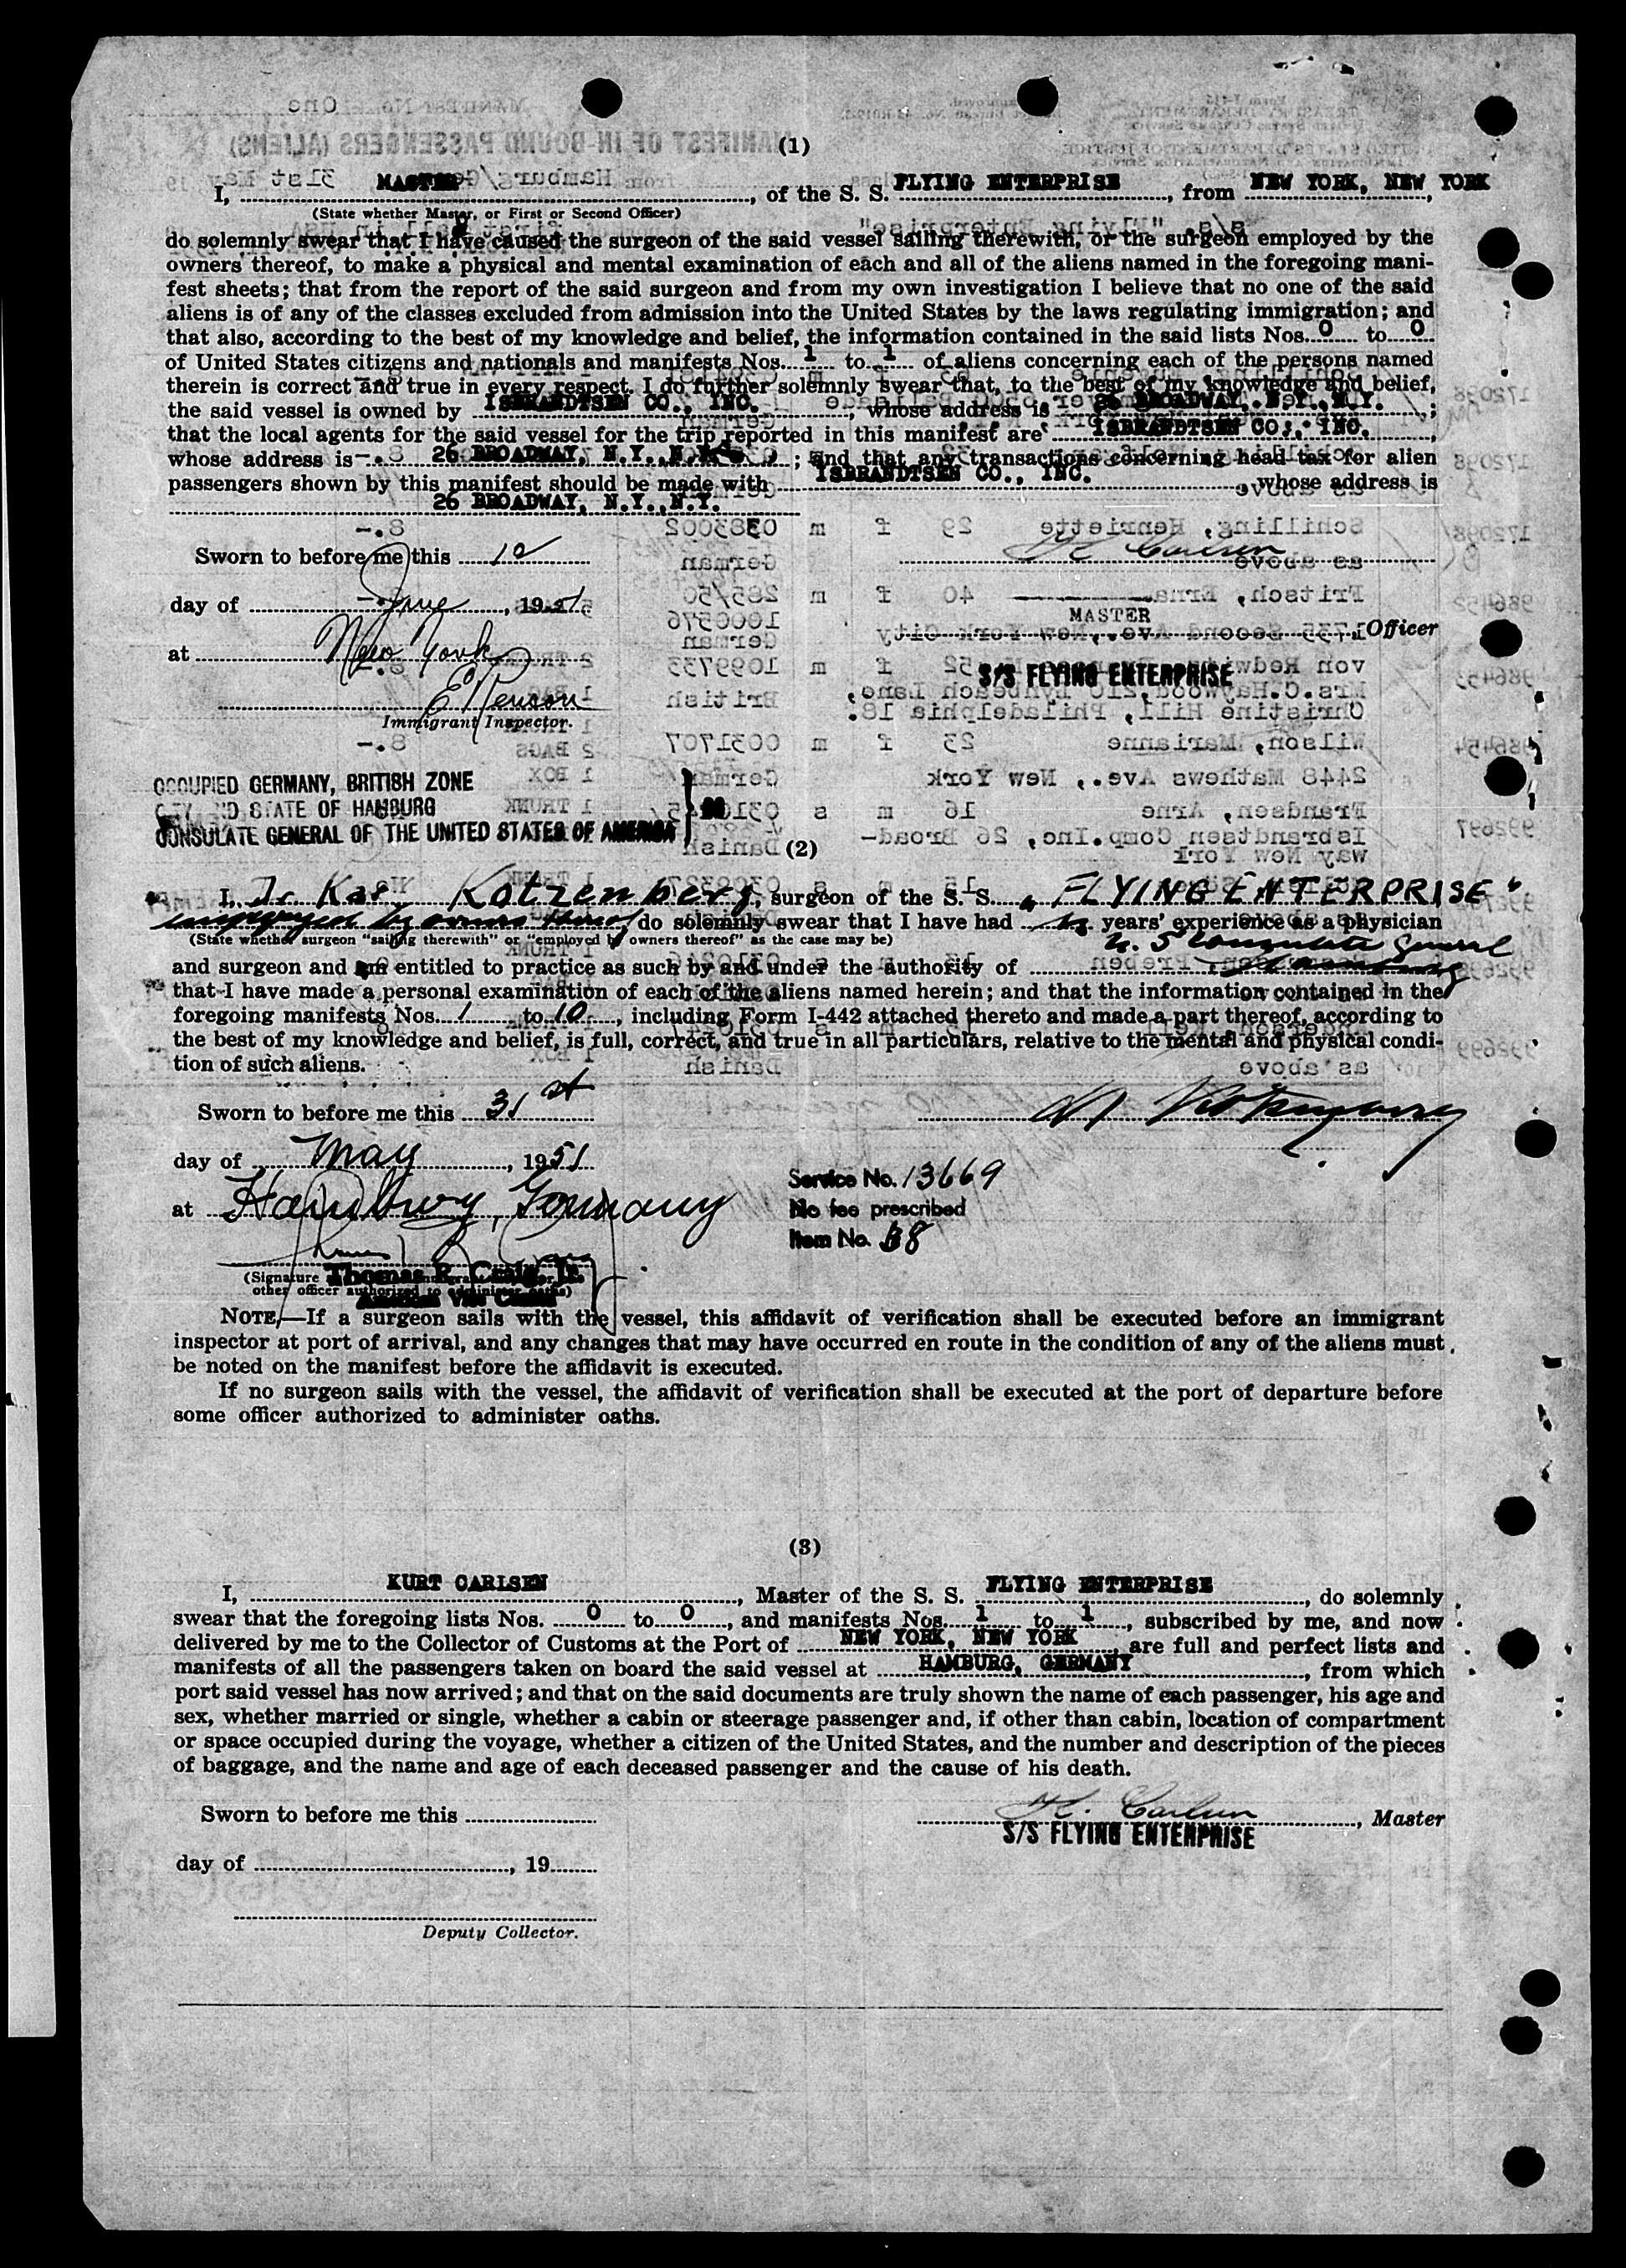 (1)
I, MASTER, of the S. S. FLYING ENTERPRISE, from NEW YORK, NEW YORK
(State whether Master, or First or Second Officer)
do solemnly swear that I have caused the surgeon of the said vessel sailing therewith, or the surgeon employed by the
owners thereof, to make a physical and mental examination of each and all of the aliens named in the foregoing mani-
fest sheets; that from the report of the said surgeon and from my own investigation I believe that no one of the said
aliens is of any of the classes excluded from admission into the United States by the laws regulating immigration; and
that also, according to the best of my knowledge and belief, the information contained in the said lists Nos. 0 to 0
of United States citizens and nationals and manifests Nos. 1 to 1 of aliens concerning each of the persons named
therein is correct and true in every respect. I do further solemnly swear that, to the best of my knowledge and belief,
the said vessel is owned by ISBRANDTSEN CO., INC., whose address is 26 BROADWAY, N.Y., N.Y.;
that the local agents for the said vessel for the trip reported in this manifest are ISBRANDTSEN CO., INC.,
whose address is 26 BROADWAY, N.Y., N.Y.; and that any transactions concerning head tax for alien
passengers shown by this manifest should be made with ISBRANDTSEN CO., INC., whose address is
26 BROADWAY, N.Y., N.Y.
Sworn to before me this 12 K Carlsen
day of June, 1951.
MASTER Officer
at New York
S/S FLYING ENTERPRISE
Immigrant Inspector.
OCCUPIED GERMANY, BRITISH ZONE
CITY AND STATE OF HAMBURG
CONSULATE GENERAL OF THE UNITED STATES OF AMERICA } SS
(2)
I, Dr Kar Kotzenberg, surgeon of the S. S. "FLYING ENTERPRISE"
employed by owners thereof, do solemnly swear that I have had years' experience as a physician
(State whether surgeon "sailing therewith" or "employed by owners thereof" as the case may be)
U. S Consulate General
and surgeon and am entitled to practice as such by and under the authority of Hamburg
that I have made a personal examination of each of the aliens named herein; and that the information contained in the
foregoing manifests Nos. 1 to 10, including Form I-442 attached thereto and made a part thereof, according to
the best of my knowledge and belief, is full, correct, and true in all particulars, relative to the mental and physical condi-
tion of such aliens.
Sworn to before me this 31st
day of May, 1951
Service No. 13669
at Hamburg, Germany
No fee prescribed
Item No. 38
(Signature Thomas R. Craig, Jr.
other officer authorized to administer oaths)
American Vice Consul
NOTE.—If a surgeon sails with the vessel, this affidavit of verification shall be executed before an immigrant
inspector at port of arrival, and any changes that may have occurred en route in the condition of any of the aliens must
be noted on the manifest before the affidavit is executed.
If no surgeon sails with the vessel, the affidavit of verification shall be executed at the port of departure before
some officer authorized to administer oaths.
(3)
I, KURT CARLSEN, Master of the S. S. FLYING ENTERPRISE, do solemnly
swear that the foregoing lists Nos. 0 to 0, and manifests Nos. 1 to 1, subscribed by me, and now
delivered by me to the Collector of Customs at the Port of NEW YORK, NEW YORK, are full and perfect lists and
manifests of all the passengers taken on board the said vessel at HAMBURG, GERMANY, from which
port said vessel has now arrived; and that on the said documents are truly shown the name of each passenger, his age and
sex, whether married or single, whether a cabin or steerage passenger and, if other than cabin, location of compartment
or space occupied during the voyage, whether a citizen of the United States, and the number and description of the pieces
of baggage, and the name and age of each deceased passenger and the cause of his death.
Sworn to before me this K. Carlsen, Master
S/S FLYING ENTERPRISE
day of, 19
Deputy Collector.